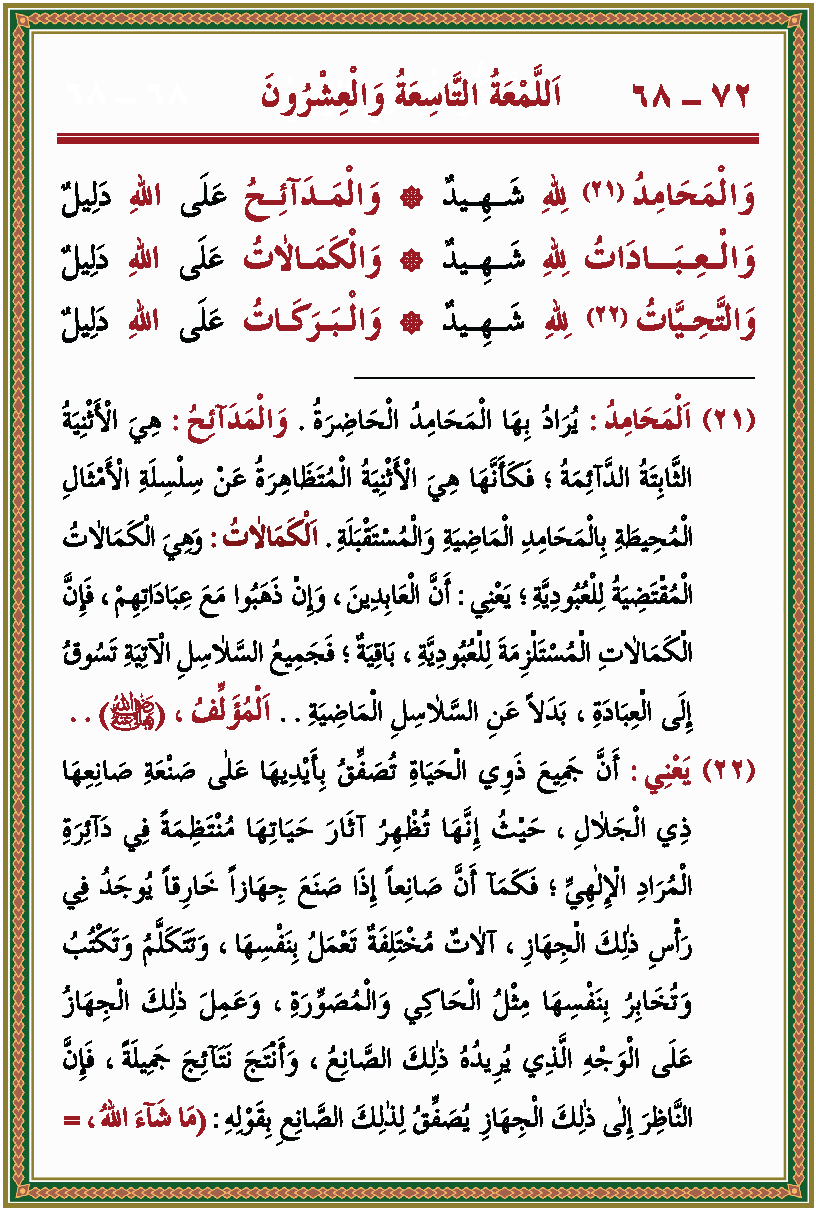 ٧٢ – ٦٨ اَللَّمْعَةُ التَّاسِعَةُ وَالْعِشْرُونَ
وَالْمَحَامِدُ (٢١) لِلّٰهِ شَهِيدٌ ۞ وَالْمَدَآئِحُ عَلَى اللّٰهِ دَلِيلٌ
وَالْعِبَادَاتُ لِلّٰهِ شَهِيدٌ ۞ وَالْكَمَالاٰتُ عَلَى اللّٰهِ دَلِيلٌ
وَالتَّحِيَّاتُ (٢٢) لِلّٰهِ شَهِيدٌ ۞ وَالْبَرَكَاتُ عَلَى اللّٰهِ دَلِيلٌ
(٢١) اَلْمَحَامِدُ : يُرَادُ بِهَا الْمَحَامِدُ الْحَاضِرَةُ . وَالْمَدَآئِحُ : هِيَ الْأَثْنِيَةُ
الثَّابِتَةُ الدَّآئِمَةُ ؛ فَكَأَنَّهَا هِيَ الْأَثْنِيَةُ الْمُتَظَاهِرَةُ عَنْ سِلْسِلَةِ الْأَمْثَالِ
الْمُحِيطَةِ بِالْمَحَامِدِ الْمَاضِيَةِ وَالْمُسْتَقْبَلَةِ . اَلْكَمَالاٰتُ : وَهِيَ الْكَمَالاٰتُ
الْمُقْتَضِيَةُ لِلْعُبُودِيَّةِ ؛ يَعْنِي : أَنَّ الْعَابِدِينَ ، وَإِنْ ذَهَبُوا مَعَ عِبَادَاتِهِمْ ، فَإِنَّ
الْكَمَالاٰتِ الْمُسْتَلْزِمَةَ لِلْعُبُودِيَّةِ ، بَاقِيَةٌ ؛ فَجَمِيعُ السَّلاٰسِلِ الْآتِيَةِ تَسُوقُ
إِلَى الْعِبَادَةِ ، بَدَلاً عَنِ السَّلاٰسِلِ الْمَاضِيَةِ . . اَلْمُؤَلِّفُ ، () . .
(٢٢) يَعْنِي : أَنَّ جَمِيعَ ذَوِي الْحَيَاةِ تُصَفِّقُ بِأَيْدِيهَا عَلٰى صَنْعَةِ صَانِعِهَا
ذِي الْجَلاٰلِ ، حَيْثُ إِنَّهَا تُظْهِرُ آثَارَ حَيَاتِهَا مُنْتَظِمَةً فِي دَآئِرَةِ
الْمُرَادِ الْإِلٰهِيِّ ؛ فَكَمَآ أَنَّ صَانِعاً إِذَا صَنَعَ جِهَازاً خَارِقاً يُوجَدُ فِي
رَأْسِ ذٰلِكَ الْجِهَازِ ، آلاٰتٌ مُخْتَلِفَةٌ تَعْمَلُ بِنَفْسِهَا ، وَتَتَكَلَّمُ وَتَكْتُبُ
وَتُخَابِرُ بِنَفْسِهَا مِثْلُ الْحَاكِي وَالْمُصَوِّرَةِ ، وَعَمِلَ ذٰلِكَ الْجِهَازُ
عَلَى الْوَجْهِ الَّذِي يُرِيدُهُ ذٰلِكَ الصَّانِعُ ، وَأَنْتَجَ نَتَآئِجَ جَمِيلَةً ، فَإِنَّ
النَّاظِرَ إِلٰى ذٰلِكَ الْجِهَازِ يُصَفِّقُ لِذٰلِكَ الصَّانِعِ بِقَوْلِهِ : (مَا شَآءَ اللّٰهُ ، =